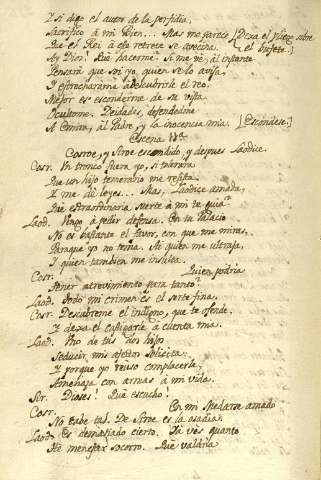 Y si digo el autor de la perfidia,
Sacrifico à mi Bien... Mas me parece [Dexa el pliego sobre
Que el Rei à esta retrete se avecina. el bufete.]
Ay Dios! Què hacerme? Si me vè, al instante
Pensarà que soi yo, quien se lo avisa.
Y estrecharame à descubrirle el reo.
Mejor es esconderme de su vista.
Ocultome. Deidades, defendedme
A Emira, al Padre, y la inocencia mia. [Escóndese.]
Escena
Cosroe, y Siroe escondido, y despues Laodice.
Cosr. Un tronco fuera yo, si tolerara
Que un hijo temerario me resista
Y me dè leyes... Mas, Laodice amada,
Què extraordinaria suerte à mi te guia?
Laod. Vengo à pedir defensa. En tu Palacio
No es bastante el favor, con que me miras,
Paraque yo no tema. Ai quien me ultraja,
Y quien tambien me insulta.
Cosr. Quien podria
Tener atrevimiento para tanto?
Laod. Todo mi crimen es el serte fina.
Cosr. Descubreme el indigno, que te ofende.
Y dexa el castigarle à cuenta mia.
Laod. Uno de tus dos hijos
Seducir mis afectos solicita:
Y porque yo reuso complacerle,
Amenaza con armas à mi vida.
Sir. Dioses! Què escucho!
Cosr. En mi Medarse amado
No cabe tal. De Siroe es la osadia.
Laod. Es demasiado cierto. Ya vès quanto
He menester socorro. Què valdria